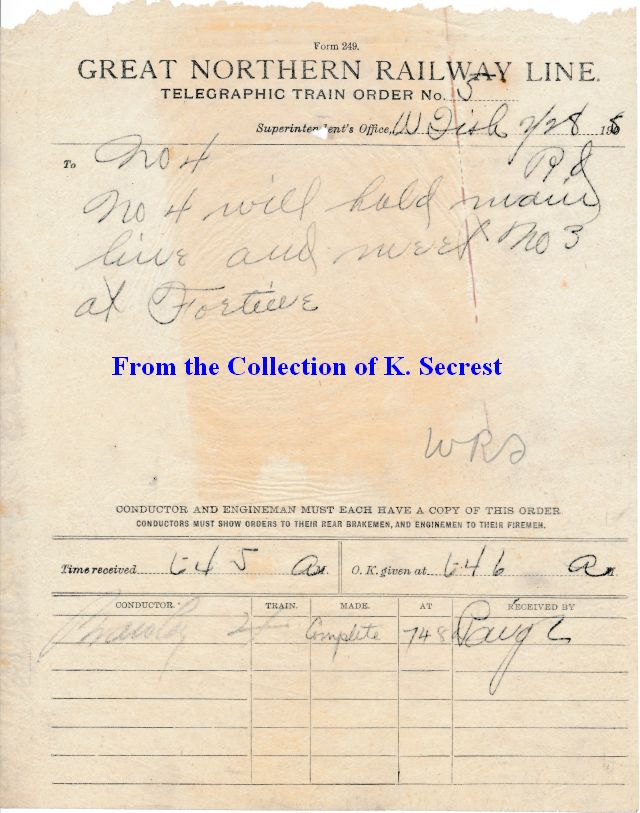 Form 249.
GREAT NORTHERN RAILWAY LINE.
TELEGRAPHIC TRAIN ORDER No. 5
Superintendent's Office, 2/28 190
To No 4
No 4 will hold main
line and meet No 3
at Fortine
From the Collection of K. Secrest
WRS
CONDUCTOR AND ENGINEMAN MUST EACH HAVE A COPY OF THIS ORDER
CONDUCTORS MUST SHOW ORDERS TO THEIR REAR BRAKEMEN, AND ENGINEMEN TO THEIR FIREMEN.
Time received 645 am. O. K. given at 646 am
CONDUCTOR. TRAIN. MADE. AT RECEIVED BY
Complete 748